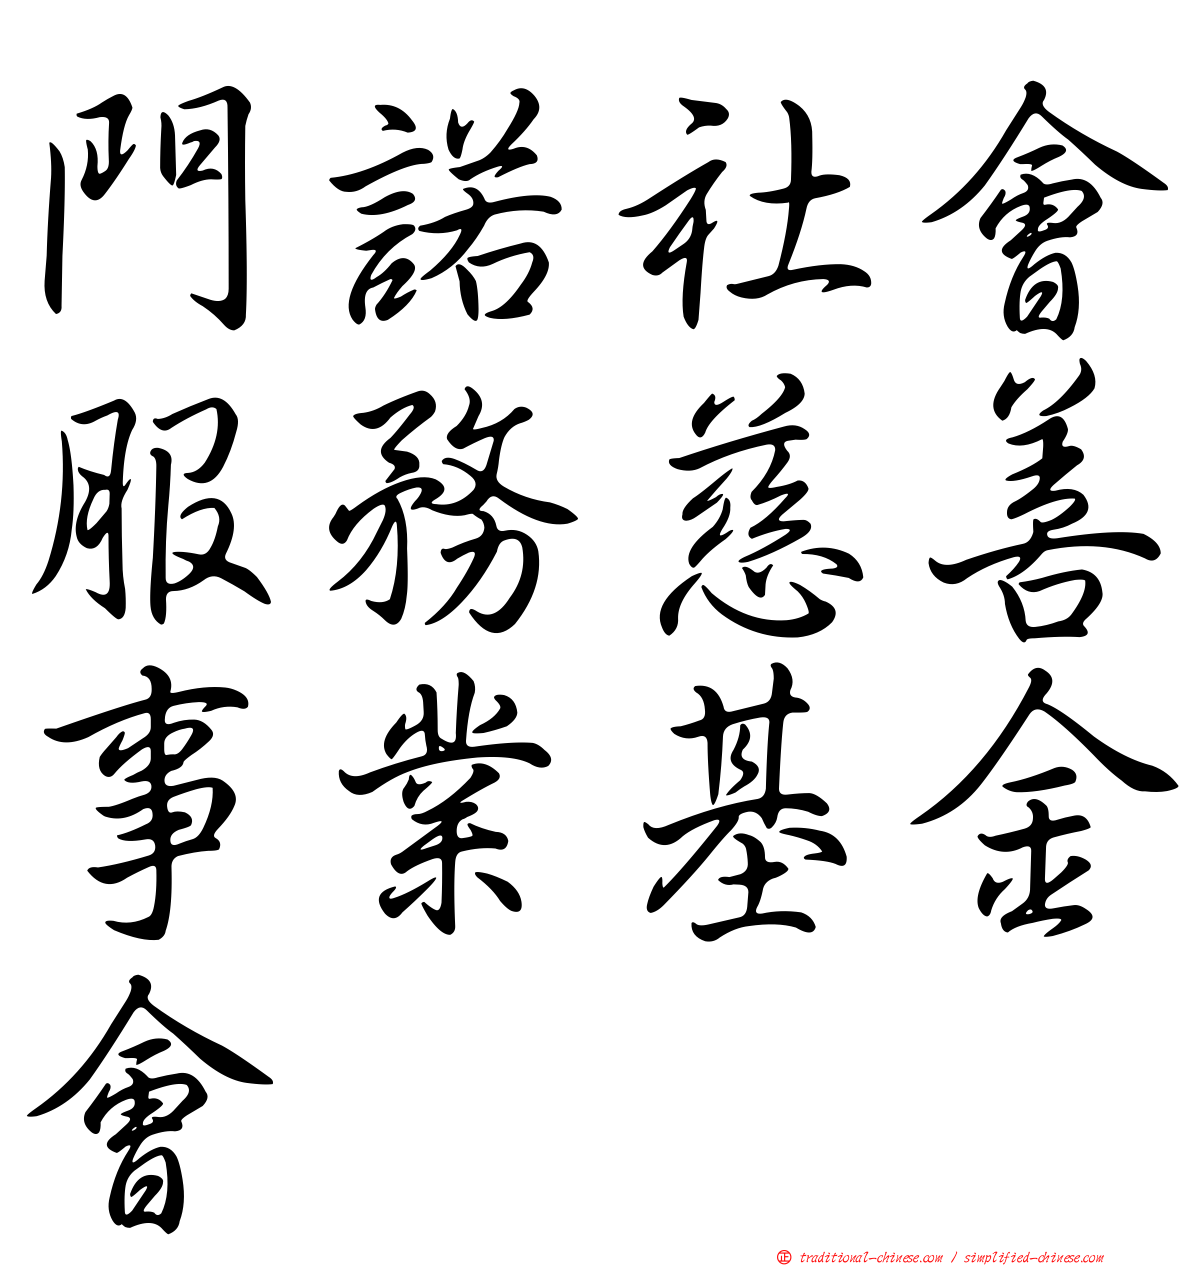 門諾社會
服務慈善
事業基金
會
㊣ traditional-chinese.com / simplified-chinese.com